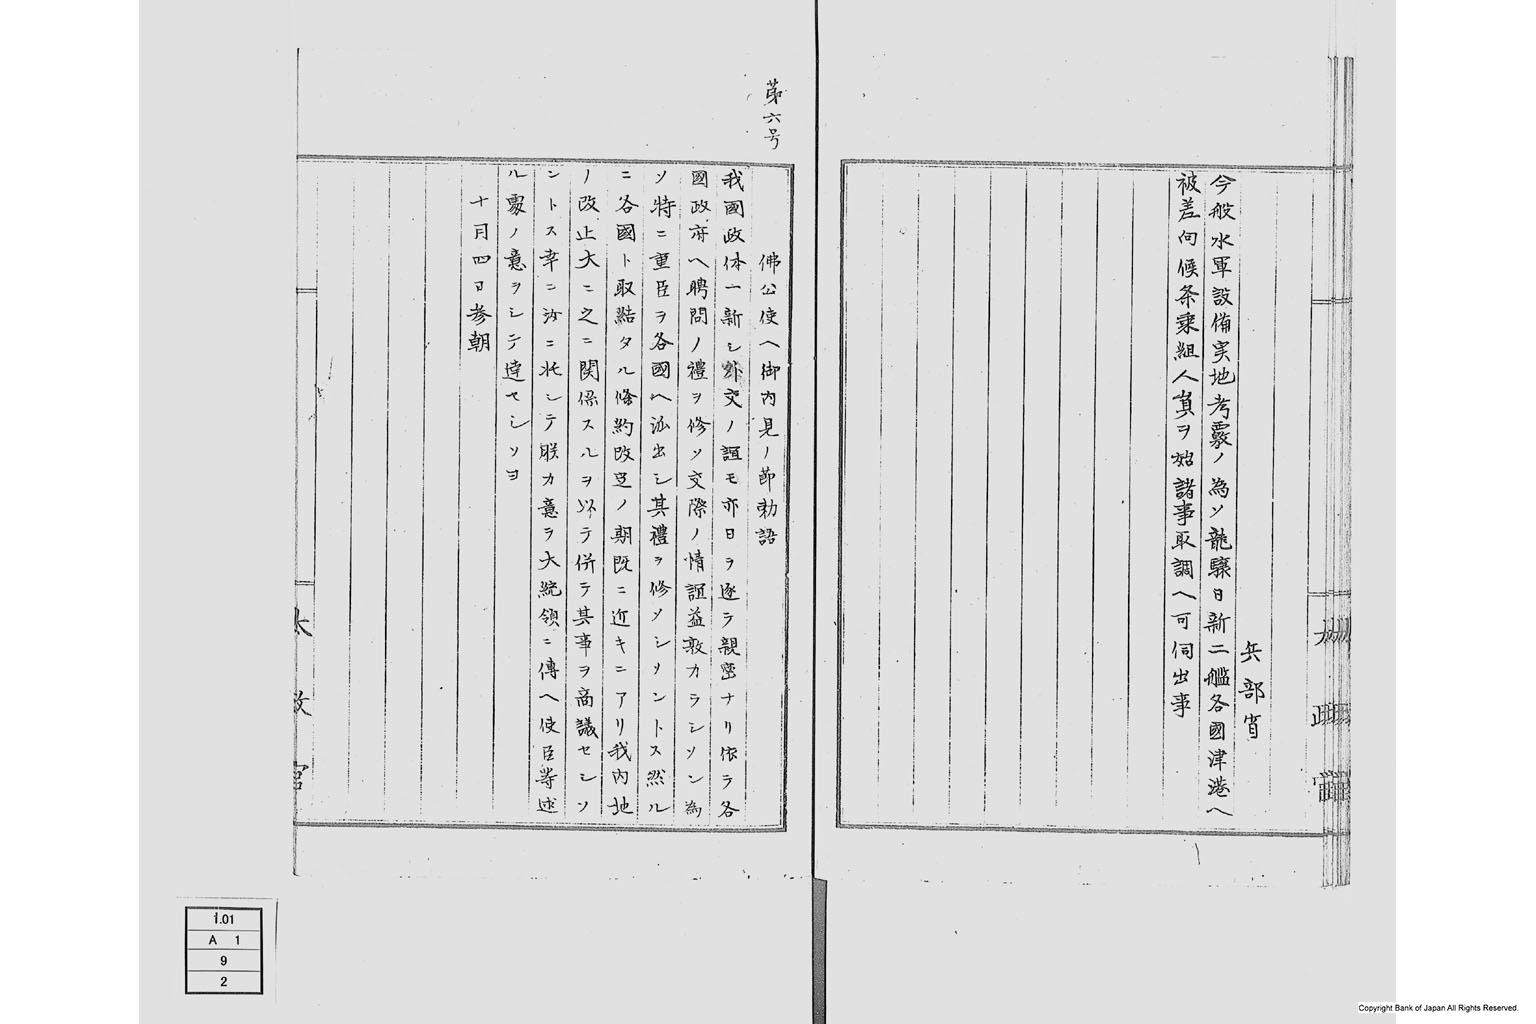 兵部省
今般水軍設備実地考覈ノ為メ龍驤日新二艦各國津港ヘ
被差向候条乗組人員ヲ始諸事取調ヘ可伺出事
太政官
第六号
佛公使ヘ御内見ノ節勅語
我國政体一新シ外交ノ誼モ亦日ヲ逐テ親密ナリ依テ各
國政府ヘ聘問ノ禮ヲ修メ交際ノ情誼益敦カラシメン為
メ特ニ重臣ヲ各國ヘ派出シ其禮ヲ修メシメントス然ル
ニ各國ト取結タル條約改定ノ期既ニ近キニアリ我内地
ノ改正大ニ之ニ関係スルヲ以テ併テ其事ヲ商議セシメ
ントス幸ニ汝ニ托シテ朕カ意ヲ大統領ニ傳ヘ使臣等述
ル處ノ意ヲシテ達セシメヨ
十月四日参朝
太政官
1.01
A 1
9
2
Copyright Bank of Japan All Rights Reserved.